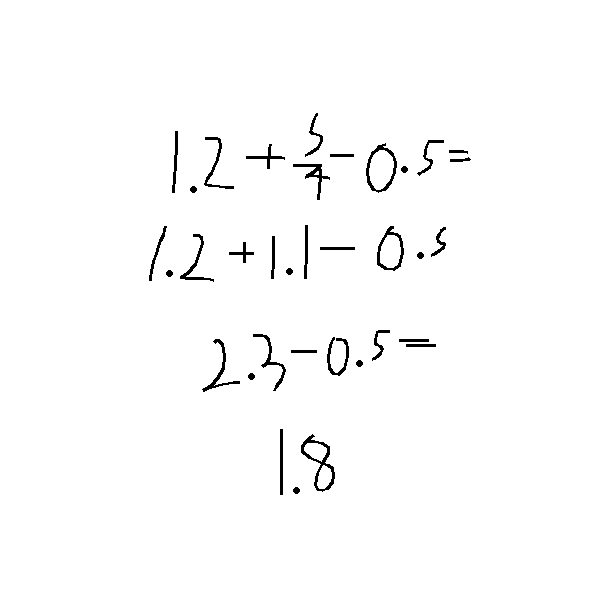 1.2 + 5/4 - 0.5 =
1.2 + 1.1 - 0.5
2.3 - 0.5 =
1.8